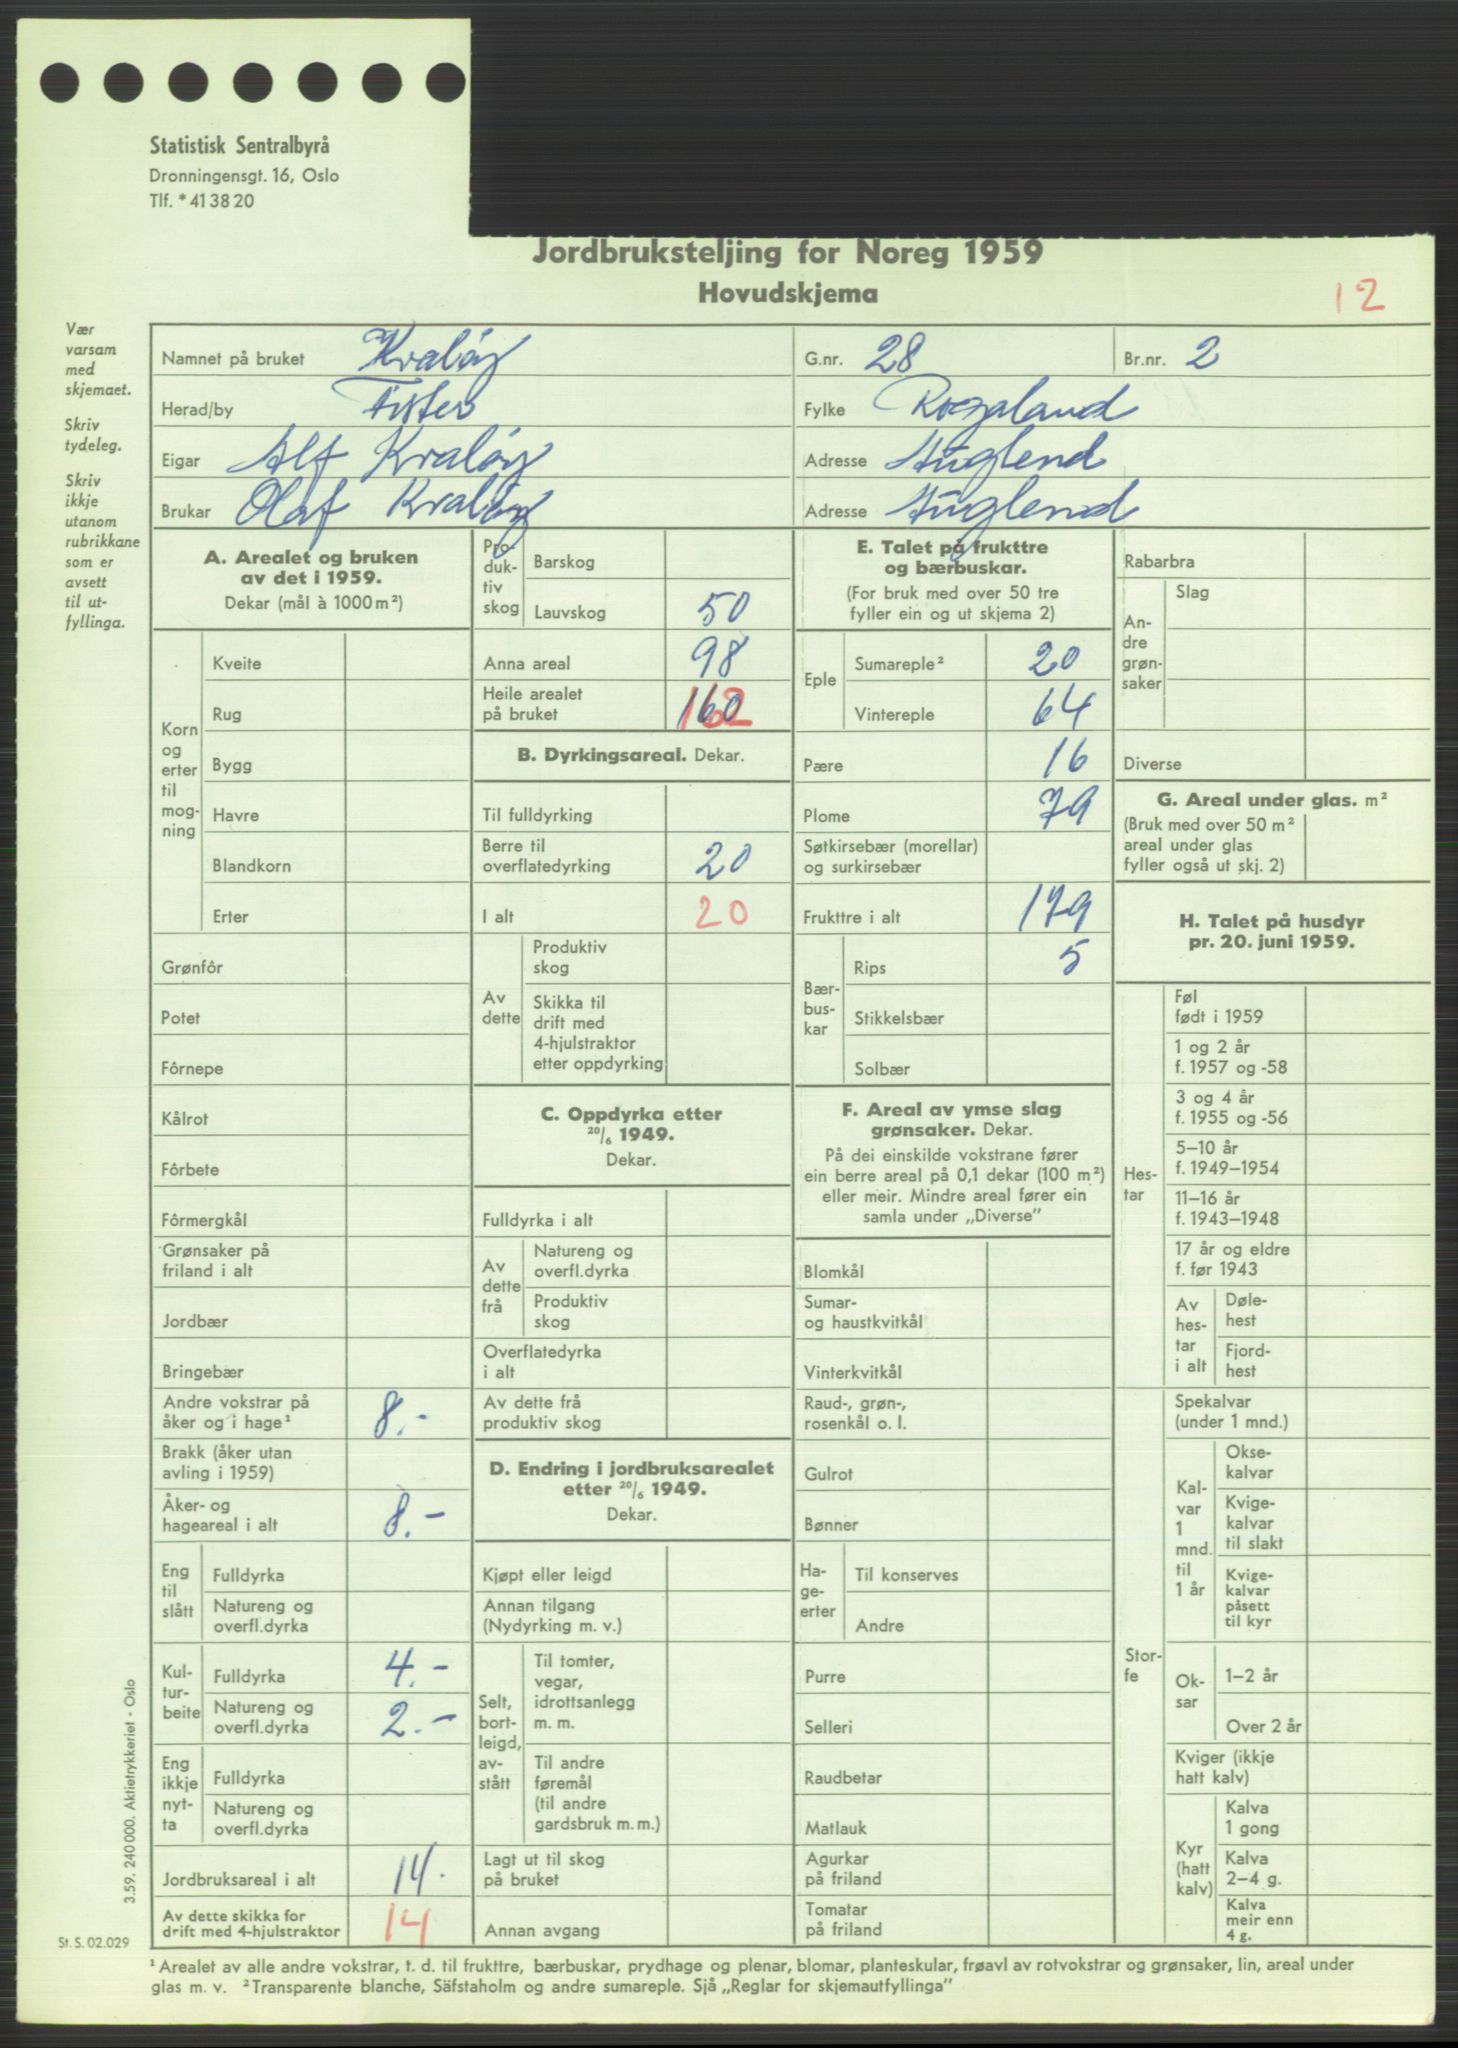 Statistisk Sentralbyrå
Dronningensgt. 16, Oslo
Tlf. * 41 38 20
Jordbruksteljing for Noreg 1959
Hovudskjema
12
Vær
varsam
med
skjemaet.
Skriv
tydeleg.
Skriv
ikkje
utanom
rubrikkane
som er
avsett
til ut-
fyllinga.
Namnet på bruket Kraløy G.nr. 28 Br.nr. 2
Herad/by Fister Fylke Rogaland
Eigar Alf Kraløy Adresse Huglend
Brukar Olaf Kraløy Adresse Huglend
A. Arealet og bruken
av det i 1959.
Dekar (mål à 1000 m²)
Korn
og
erter
til
mog-
ning
Kveite
Rug
Bygg
Havre
Blandkorn
Erter
Grønfôr
Potet
Fôrnepe
Kålrot
Fôrbete
Fôrmergkål
Grønsaker på
friland i alt
Jordbær
Bringebær
Andre vokstrar på
åker og i hage¹ 8.-
Brakk (åker utan
avling i 1959)
Åker- og
hageareal i alt 8.-
Eng
til
slått
Fulldyrka
Natureng og
overfl.dyrka
Kul-
tur-
beite
Fulldyrka 4.-
Natureng og
overfl.dyrka 2.-
Eng
ikkje
nyt-
ta
Fulldyrka
Natureng og
overfl.dyrka
Jordbruksareal i alt 14.
Av dette skikka for
drift med 4-hjulstraktor 14
Pro-
duk-
tiv
skog
Barskog
Lauvskog 50
Anna areal 98
Heile arealet
på bruket 160 162
B. Dyrkingsareal. Dekar.
Til fulldyrking
Berre til
overflatedyrking 20
I alt 20
Av
dette
Produktiv
skog
Skikka til
drift med
4-hjulstraktor
etter oppdyrking
C. Oppdyrka etter
20/6 1949.
Dekar.
Fulldyrka i alt
Av
dette
frå
Natureng og
overfl.dyrka
Produktiv
skog
Overflatedyrka
i alt
Av dette frå
produktiv skog
D. Endring i jordbruksarealet
etter 20/6 1949.
Dekar.
Kjøpt eller leigd
Annan tilgang
(Nydyrking m. v.)
Selt,
bort-
leigd,
av-
stått
Til tomter,
vegar,
idrottsanlegg
m. m.
Til andre
føremål
(til andre
gardsbruk m. m.)
Lagt ut til skog
på bruket
Annan avgang
E. Talet på frukttre
og bærbuskar.
(For bruk med over 50 tre
fyller ein og ut skjema 2)
Eple
Sumareple² 20
Vintereple 64
Pære 16
Plome 79
Søtkirsebær (morellar)
og surkirsebær
Frukttre i alt 179
Bær-
bus-
kar
Rips 5
Stikkelsbær
Solbær
F. Areal av ymse slag
grønsaker. Dekar.
På dei einskilde vokstrane fører
ein berre areal på 0,1 dekar (100 m²)
eller meir. Mindre areal fører ein
samla under „Diverse”
Blomkål
Sumar-
og haustkvitkål
Vinterkvitkål
Raud-, grøn-,
rosenkål o. l.
Gulrot
Bønner
Ha-
ge-
erter
Til konserves
Andre
Purre
Selleri
Raudbetar
Matlauk
Agurkar
på friland
Tomatar
på friland
Rabarbra
An-
dre
grøn-
saker
Slag
Diverse
G. Areal under glas. m²
(Bruk med over 50 m²
areal under glas
fyller også ut skj. 2)
H. Talet på husdyr
pr. 20. juni 1959.
Hes-
tar
Føl
født i 1959
1 og 2 år
f. 1957 og -58
3 og 4 år
f. 1955 og -56
5–10 år
f. 1949–1954
11–16 år
f. 1943–1948
17 år og eldre
f. før 1943
Av
hes-
tar
i alt
Døle-
hest
Fjord-
hest
Stor-
fe
Spekalvar
(under 1 mnd.)
Kal-
var
1
mnd.
til
1 år
Okse-
kalvar
Kvige-
kalvar
til slakt
Kvige-
kalvar
påsett
til kyr
Ok-
sar
1–2 år
Over 2 år
Kviger (ikkje
hatt kalv)
Kyr
(hatt
kalv)
Kalva
1 gong
Kalva
2–4 g.
Kalva
meir enn
4 g.
3.59. 240 000. Aktietrykkeriet - Oslo
St. S. 02.029
¹ Arealet av alle andre vokstrar, t. d. til frukttre, bærbuskar, prydhage og plenar, blomar, planteskular, frøavl av rotvokstrar og grønsaker, lin, areal under
glas m. v. ² Transparente blanche, Säfstaholm og andre sumareple. Sjå „Reglar for skjemautfyllinga”